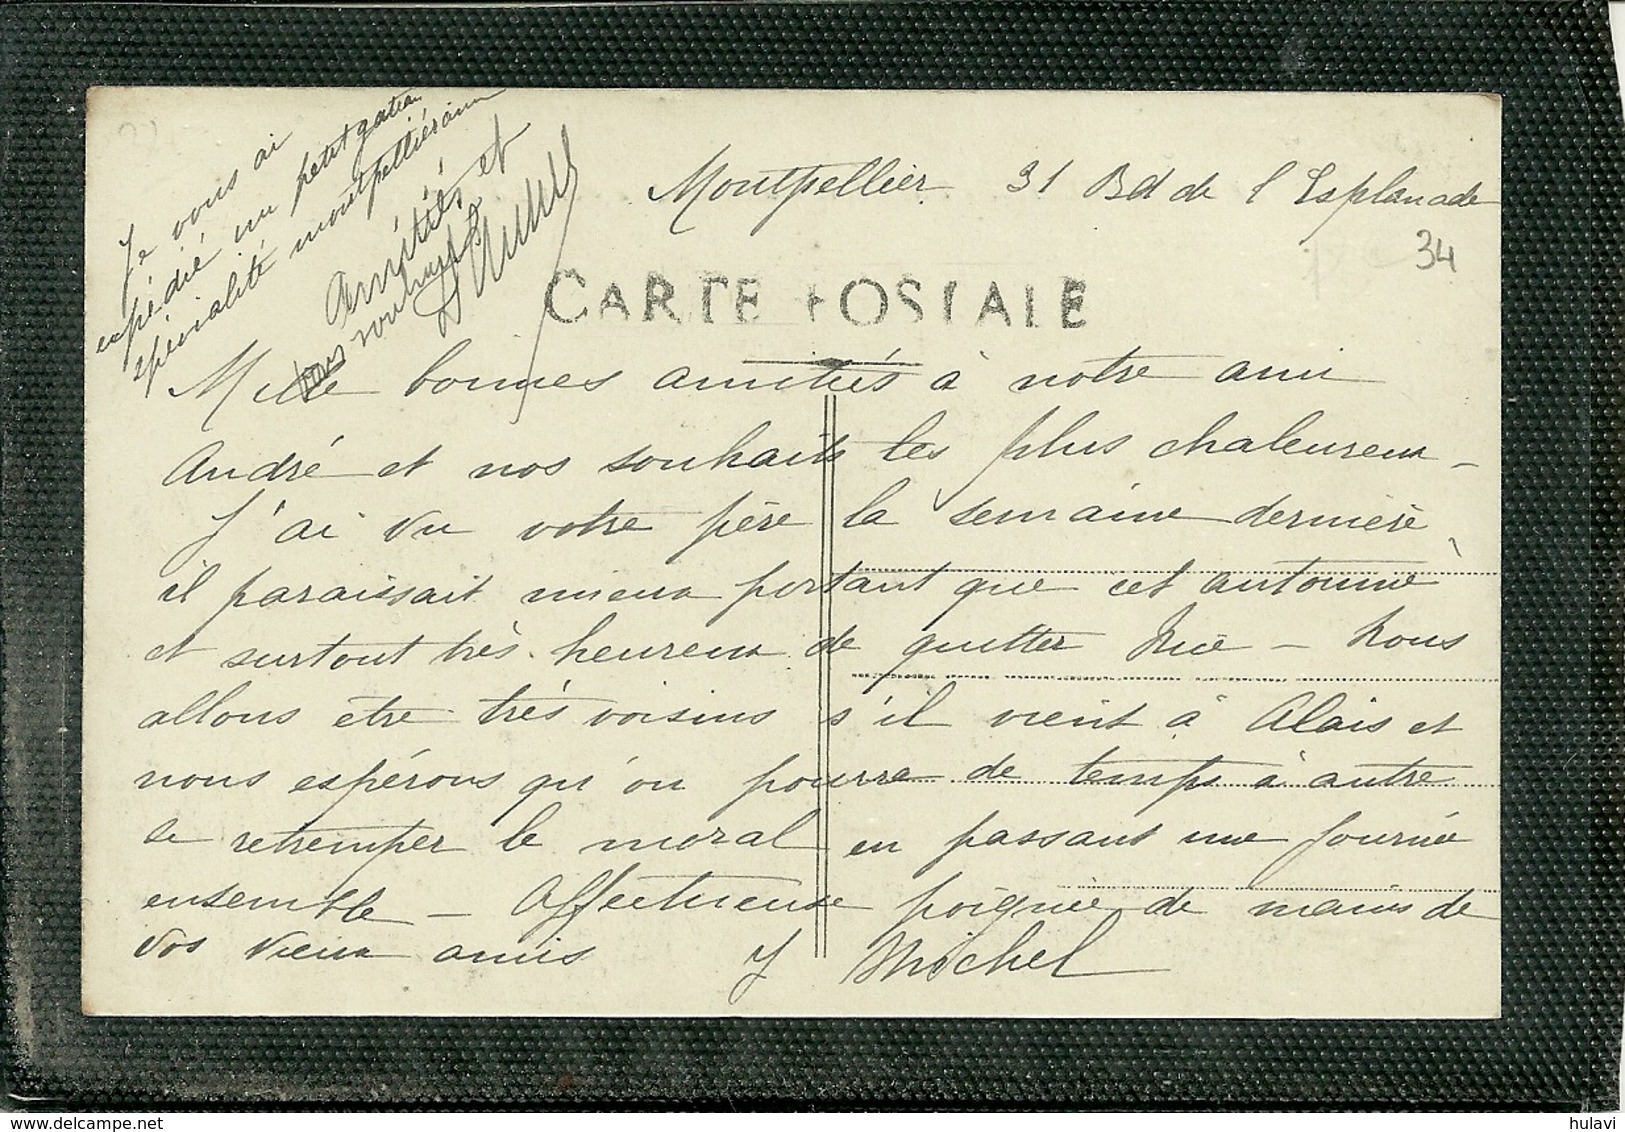 Je vous ai
expédié un petit gateau
spécialité montpelliéraine
Amitiés et
Montpellier 31 Bd de l'Esplanade
34
CARTE POSTALE
Mille bonnes amitiés à notre ami
André et nos souhaits les plus chaleureux -
J'ai vu votre père la semaine dernière,
il paraissait mieux portant que cet automne
et surtout très heureux de quitter Nice - Nous
allons etre très voisins s'il vient à Alais et
nous espérons qu'on pourra de temps à autre
se retremper le moral en passant une journée
ensemble - Affectueuse poignée de mains de
vos vieux amis Y Michel
hulavi
delcampe.net